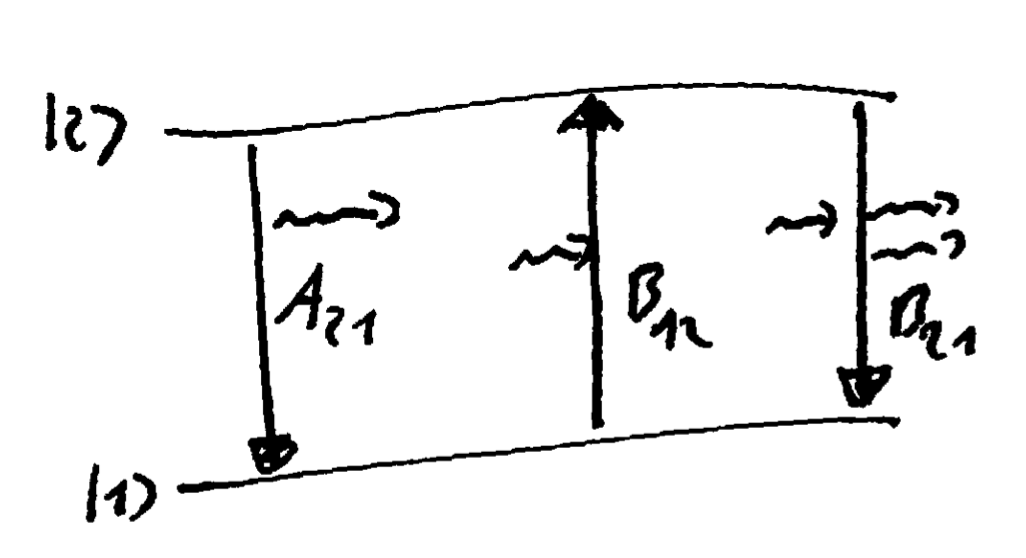 |2⟩
A₂₁
B₁₂
B₂₁
|1⟩